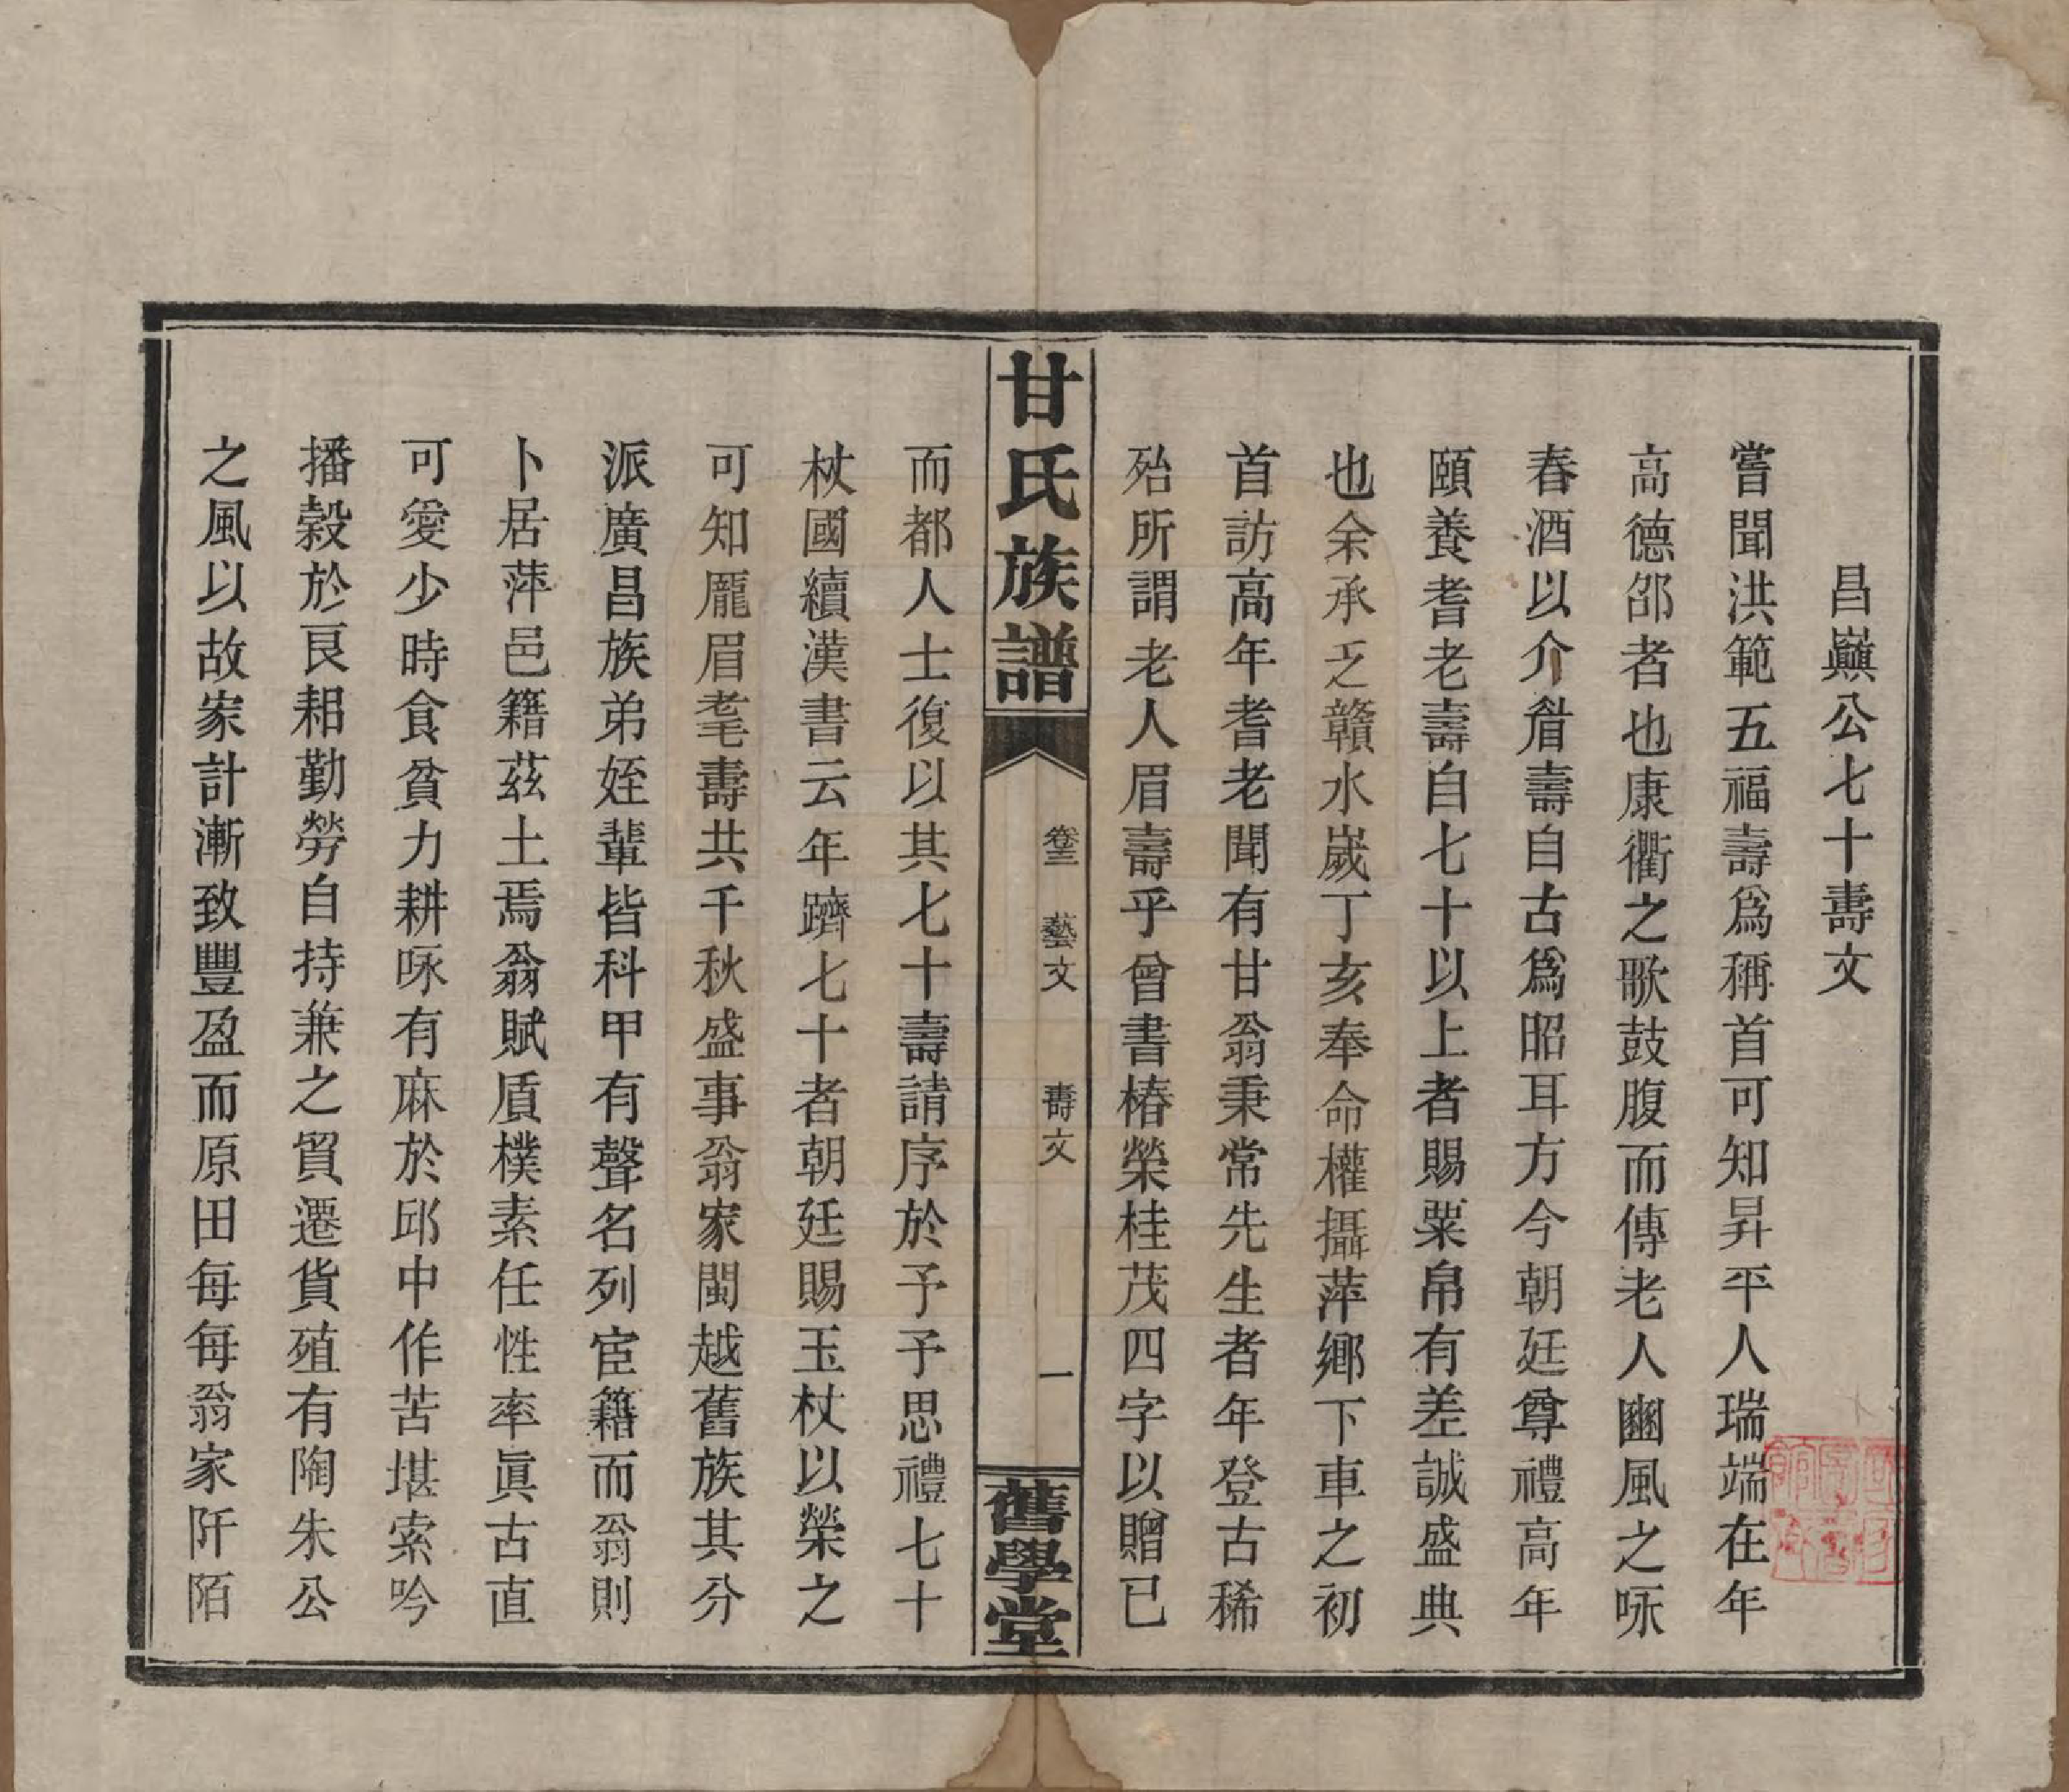 昌巔公七十壽文
嘗聞洪範五福壽爲稱首可知昇平人瑞端在年
高德邵者也康衢之歌鼓腹而傳老人豳風之咏
春酒以介眉壽自古爲昭耳方今朝廷尊禮高年
頤養耆老壽自七十以上者賜粟帛有差誠盛典
也余承乏贛水嵗丁亥奉命權攝萍鄉下車之初
首訪高年耆老聞有甘翁秉常先生者年登古稀
殆所謂老人眉壽乎曾書椿榮桂茂四字以贈已
甘氏族譜
卷三 藝文 壽文 一
舊學堂
而都人士復以其七十壽請序於予予思禮七十
杖國續漢書云年躋七十者朝廷賜玉杖以榮之
可知龎眉耄壽共千秋盛事翁家閩越舊族其分
派廣昌族弟姪輩皆科甲有聲名列宦籍而翁則
卜居萍邑籍茲土焉翁賦質樸素任性率眞古直
可愛少時食貧力耕咏有麻於邱中作苦堪索吟
播穀於良耜勤勞自持兼之貿遷貨殖有陶朱公
之風以故家計漸致豐盈而原田每每翁家阡陌